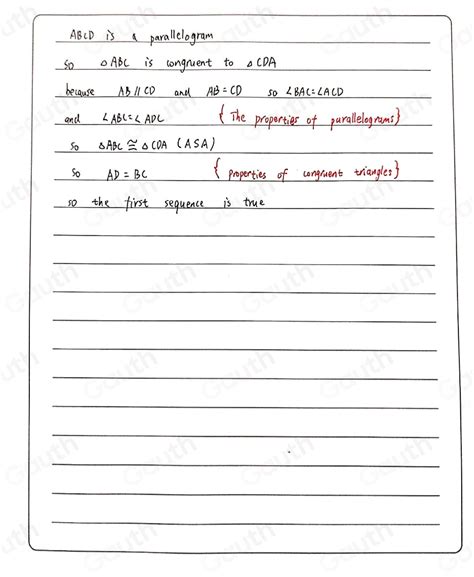 ABCD is a parallelogram
so △ABC is congruent to △CDA
because AB // CD and AB = CD so ∠BAC=∠ACD
and ∠ABC=∠ADC {The properties of parallelograms}
so △ABC ≅ △CDA (ASA)
so AD = BC {properties of congruent triangles}
so the first sequence is true
Gauth